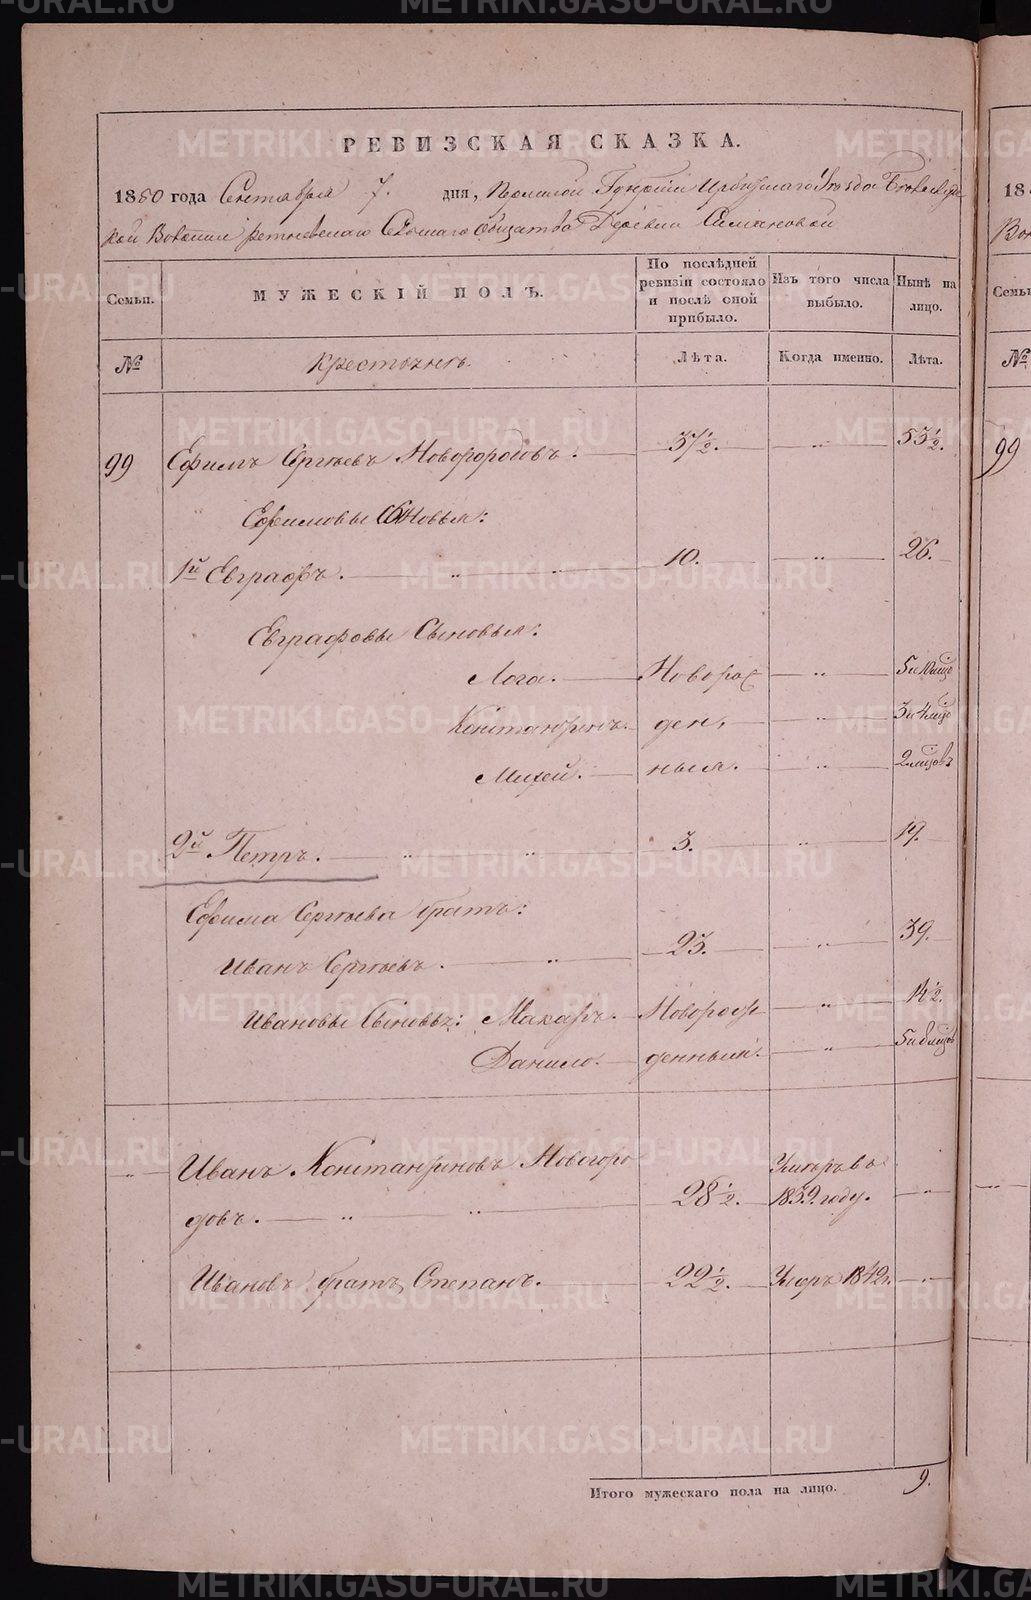 РЕВИЗСКАЯ СКАЗКА.
1850 года Сентября 7. дня, Пермской Губернии Ирбитскаго Уезда
кой Волости Сельскаго Общества Деревни Симановой
Семьи. МУЖЕСКІЙ ПОЛЪ. По послѣдней ревизіи состояло и послѣ оной прибыло. Изъ того числа выбыло. Нынѣ на лицо.
№ Крестьянъ. Лѣта. Когда именно. Лѣта.
99 Ефимъ Сергѣевъ Новогородовъ. 37½. " 53½.
Ефимовы Сыновья:
1й Евграфъ. " " 10. " 26.
Евграфовы Сыновья:
Лога. Новорож " 5 и 10 мцъ
Константинъ. ден, " 3 и 4 мцъ
Михей. ныя. " 2 мцовъ
2й Петръ. " " 3. " 19.
Ефима Сергѣева братъ:
Иванъ Сергѣевъ. " 23. " 39.
Ивановы Сыновья: Макаръ. Новорож " 14½.
Данило. денныи. "
" Иванъ Константиновъ Новогоро
довъ. " " 28½. Умеръ въ 1839 году. "
Ивановъ братъ Степанъ. 22½. Умеръ 1842 г. "
Итого мужескаго пола на лицо. 9.
METRIKI.GASO-URAL.RU